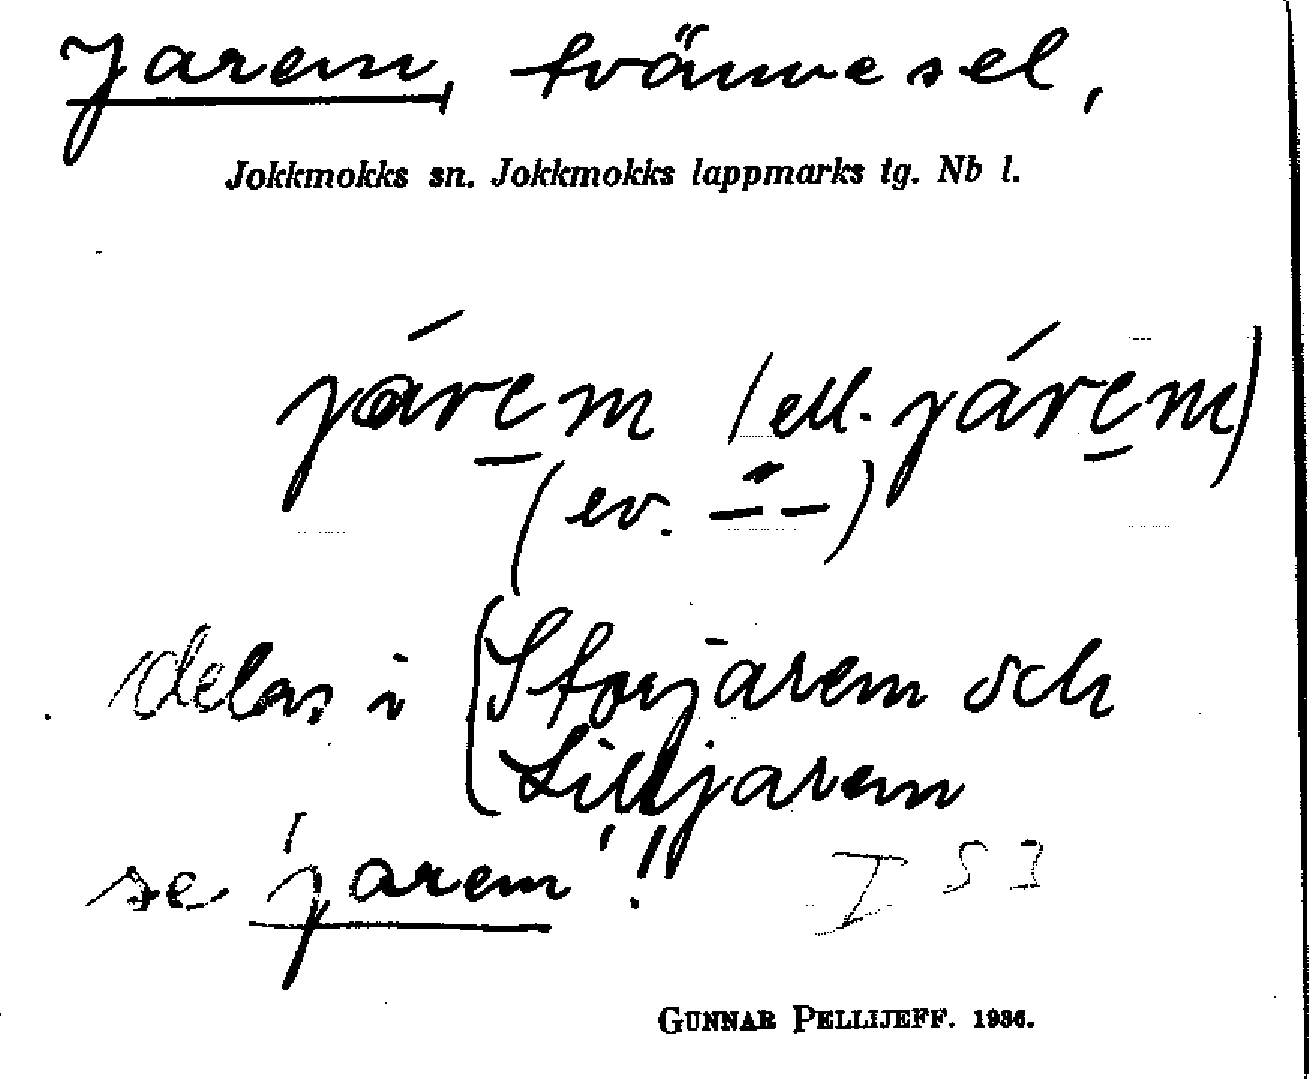 Jarem, tvänne sel,
Jokkmokks sn. Jokkmokks lappmarks tg. Nb l.
járem (ell. járem)
(ev. – –)
delas i (Storjarem och
Lilljarem
se 'jarem'!!
I 53
GUNNAR PELLIJEFF. 1936.